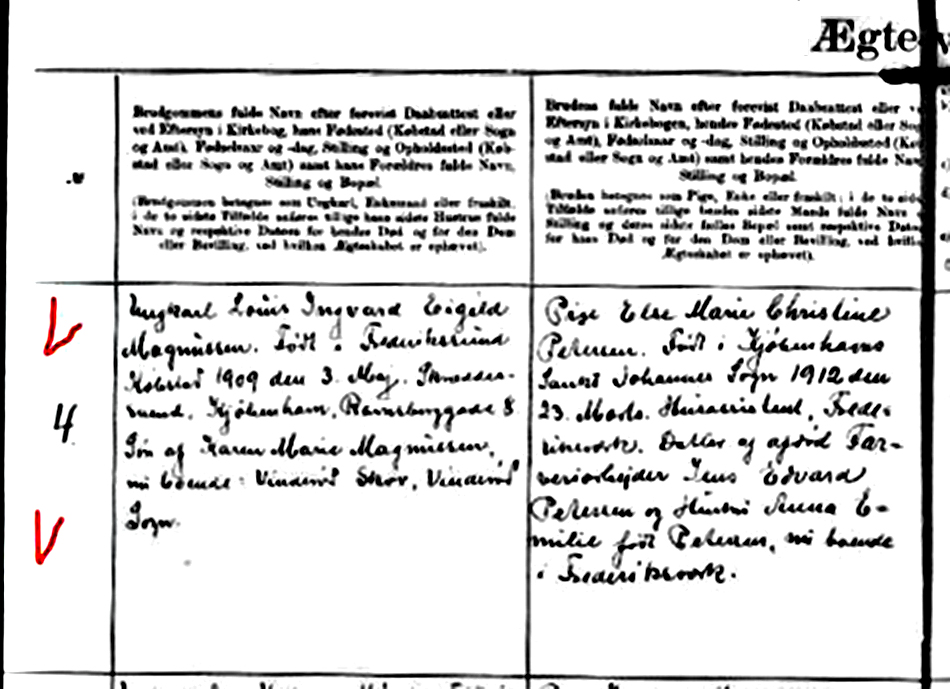 Ægte
Brudgommens fulde Navn efter forevist Daabsattest eller
ved Eftersyn i Kirkebog, hans Fødested (Købstad eller Sogn
og Amt), Fødselsaar og -dag, Stilling og Opholdssted (Køb-
stad eller Sogn og Amt) samt hans Forældres fulde Navn,
Stilling og Bopæl.
(Brudgommen betegnes som Ungkarl, Enkemand eller fraskilt;
i de to sidste Tilfælde anføres tillige hans sidste Hustrus fulde
Navn og respektive Datoen for hendes Død og for den Dom
eller Bevilling, ved hvilken Ægteskabet er ophævet).
Brudens fulde Navn efter forevist Daabsattest eller v
ved Eftersyn i Kirkebogen, hendes Fødested (Købstad eller Sog
og Amt), Fødselsaar og -dag, Stilling og Opholdssted (Kø
stad eller Sogn og Amt) samt hendes Forældres fulde Nav
Stilling og Bopæl.
(Bruden betegnes som Pige, Enke eller fraskilt; i de to sids
Tilfælde anføres tillige hendes sidste Mands fulde Navn
Stilling og deres sidste fælles Bopæl samt respektive Dato
for hans Død og for den Dom eller Bevilling, ved hvilk
Ægteskabet er ophævet).
4
Ungkarl Louis Ingvard Eigild
Magnussen. Født i Frederikssund
Købstad 1909 den 3. Maj. Skrædder-
svend, Kjøbenham, Ravnsborggade 8
Søn af Karen Marie Magnussen,
nu boende: Vinderød Skov, Vinderød
Sogn.
Pige Else Marie Christine
Petersen. Født i Kjøbenhavns
Sankt Johannes Sogn 1912 den
23. Marts. Husassistent, Frede-
riksværk. Datter af afdød Far-
veriarbejder Jens Edvard
Petersen og Hustru Anna E-
milie født Petersen, nu boende
i Frederiksværk.